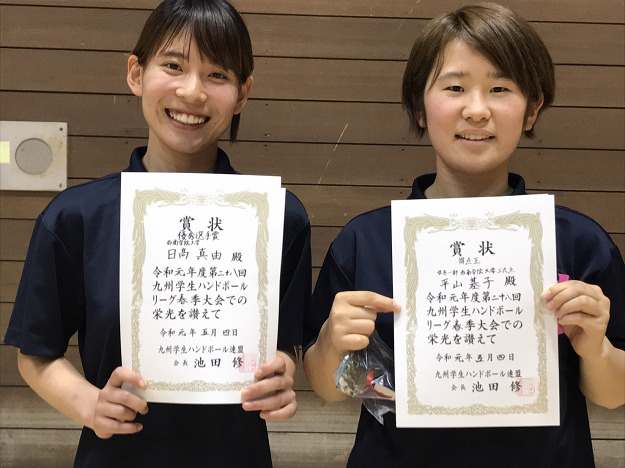 賞状
優秀選手賞
西南学院大学
日高 真由 殿
令和元年度第二十八回
九州学生ハンドボール
リーグ春季大会での
栄光を讃えて
令和元年五月四日
九州学生ハンドボール連盟
会長 池田 修
賞状
得点王
女子一部 西南学院大学
平山 基子 殿
令和元年度第二十八回
九州学生ハンドボール
リーグ春季大会での
栄光を讃えて
令和元年五月四日
九州学生ハンドボール連盟
会長 池田 修